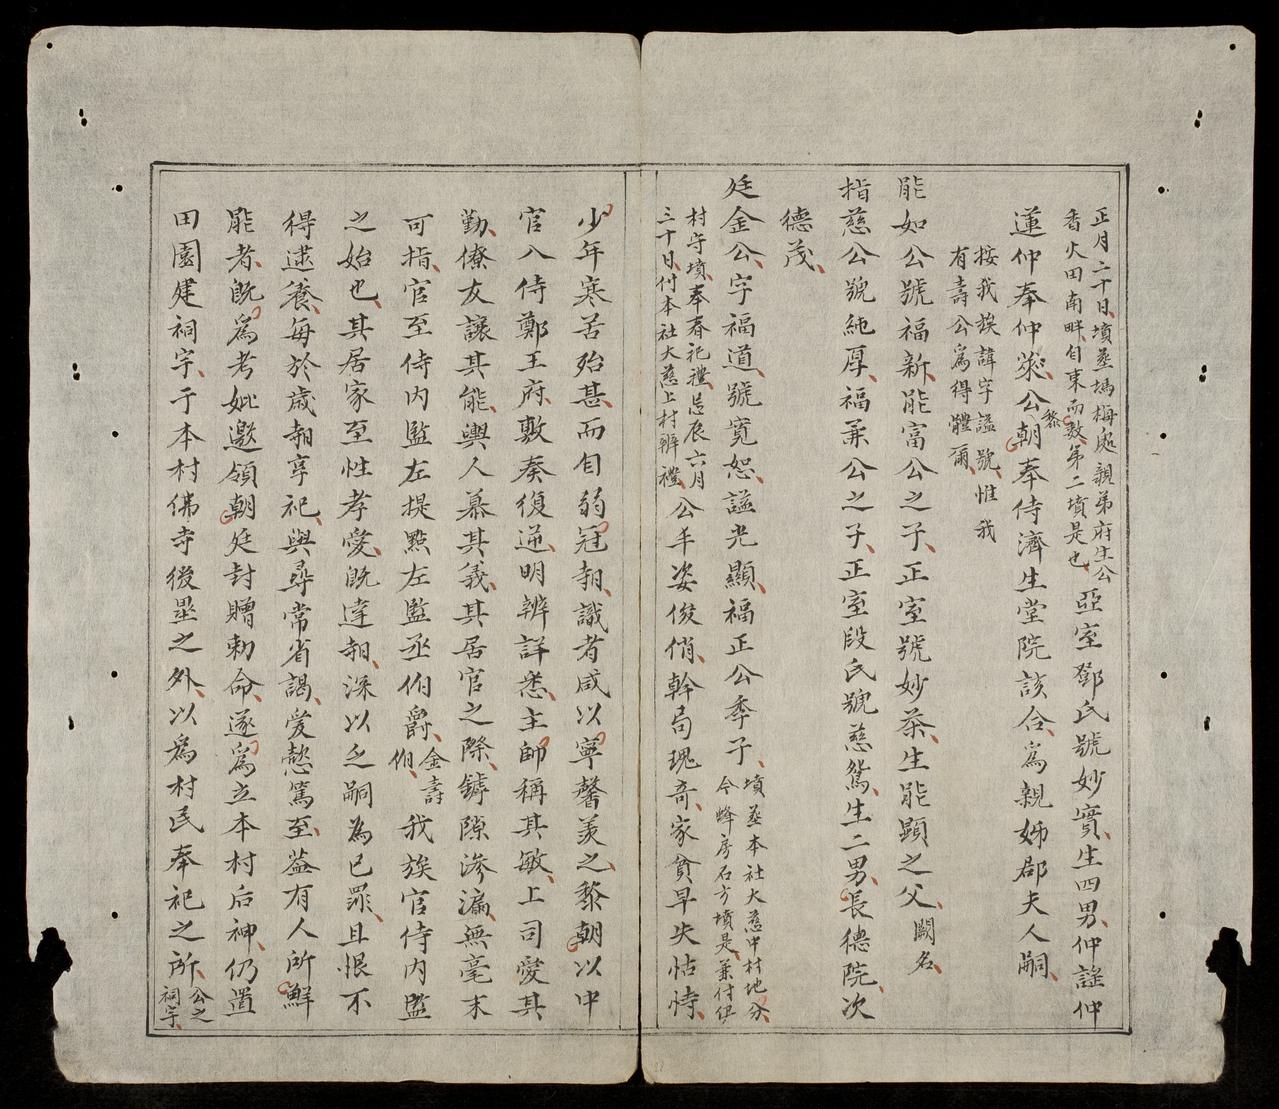 正月二十日墳葬塢梅處親弟府生公
香火田南畔自東而數第二墳是也
亞室鄧氏號妙實生四男仲謠仲
蓮仲奉仲黎公朝奉侍濟生堂院該合為親姊郡夫人嗣
按我族諱字謚號惟我
有壽公為得體爾
能如公號福新能富公之子正室號妙茶生能顕之父闕名
指慈公號純厚福兼公之子正室段氏號慈鴛生二男長德院次
德茂
廷金公字福道號寬恕謚光顯福正公季子
墳葬本社大慈中村地分
今蜂房石方墳是兼付伊
村守墳奉春祀禮忌辰六月
三十日付本社大慈上村辨禮
公丰姿俊俏幹局瑰奇家貧早失怙恃
少年寒苦殆甚而自弱冠朝識者咸以寧馨羨之黎朝以中
官入侍鄭王府敷奏復逓明辨詳悉主帥稱其敏上司愛其
勤僚友讓其能輿人慕其義其居官之際罅隙滲漏無毫末
可指官至侍內監左提點左監丞伯爵
金壽
伯
我族官侍內監
之始也其居家至性孝愛既達朝深以乏嗣為已罪且恨不
得逮養每於歲朝享祀與尋常省謁爱慤篤至葢有人所鮮
能者既為考妣邀領朝廷封贈勅命遂為立本村后神仍置
田園建祠宇于本村佛寺後壘之外以為村民奉祀之所
公之
祠宇